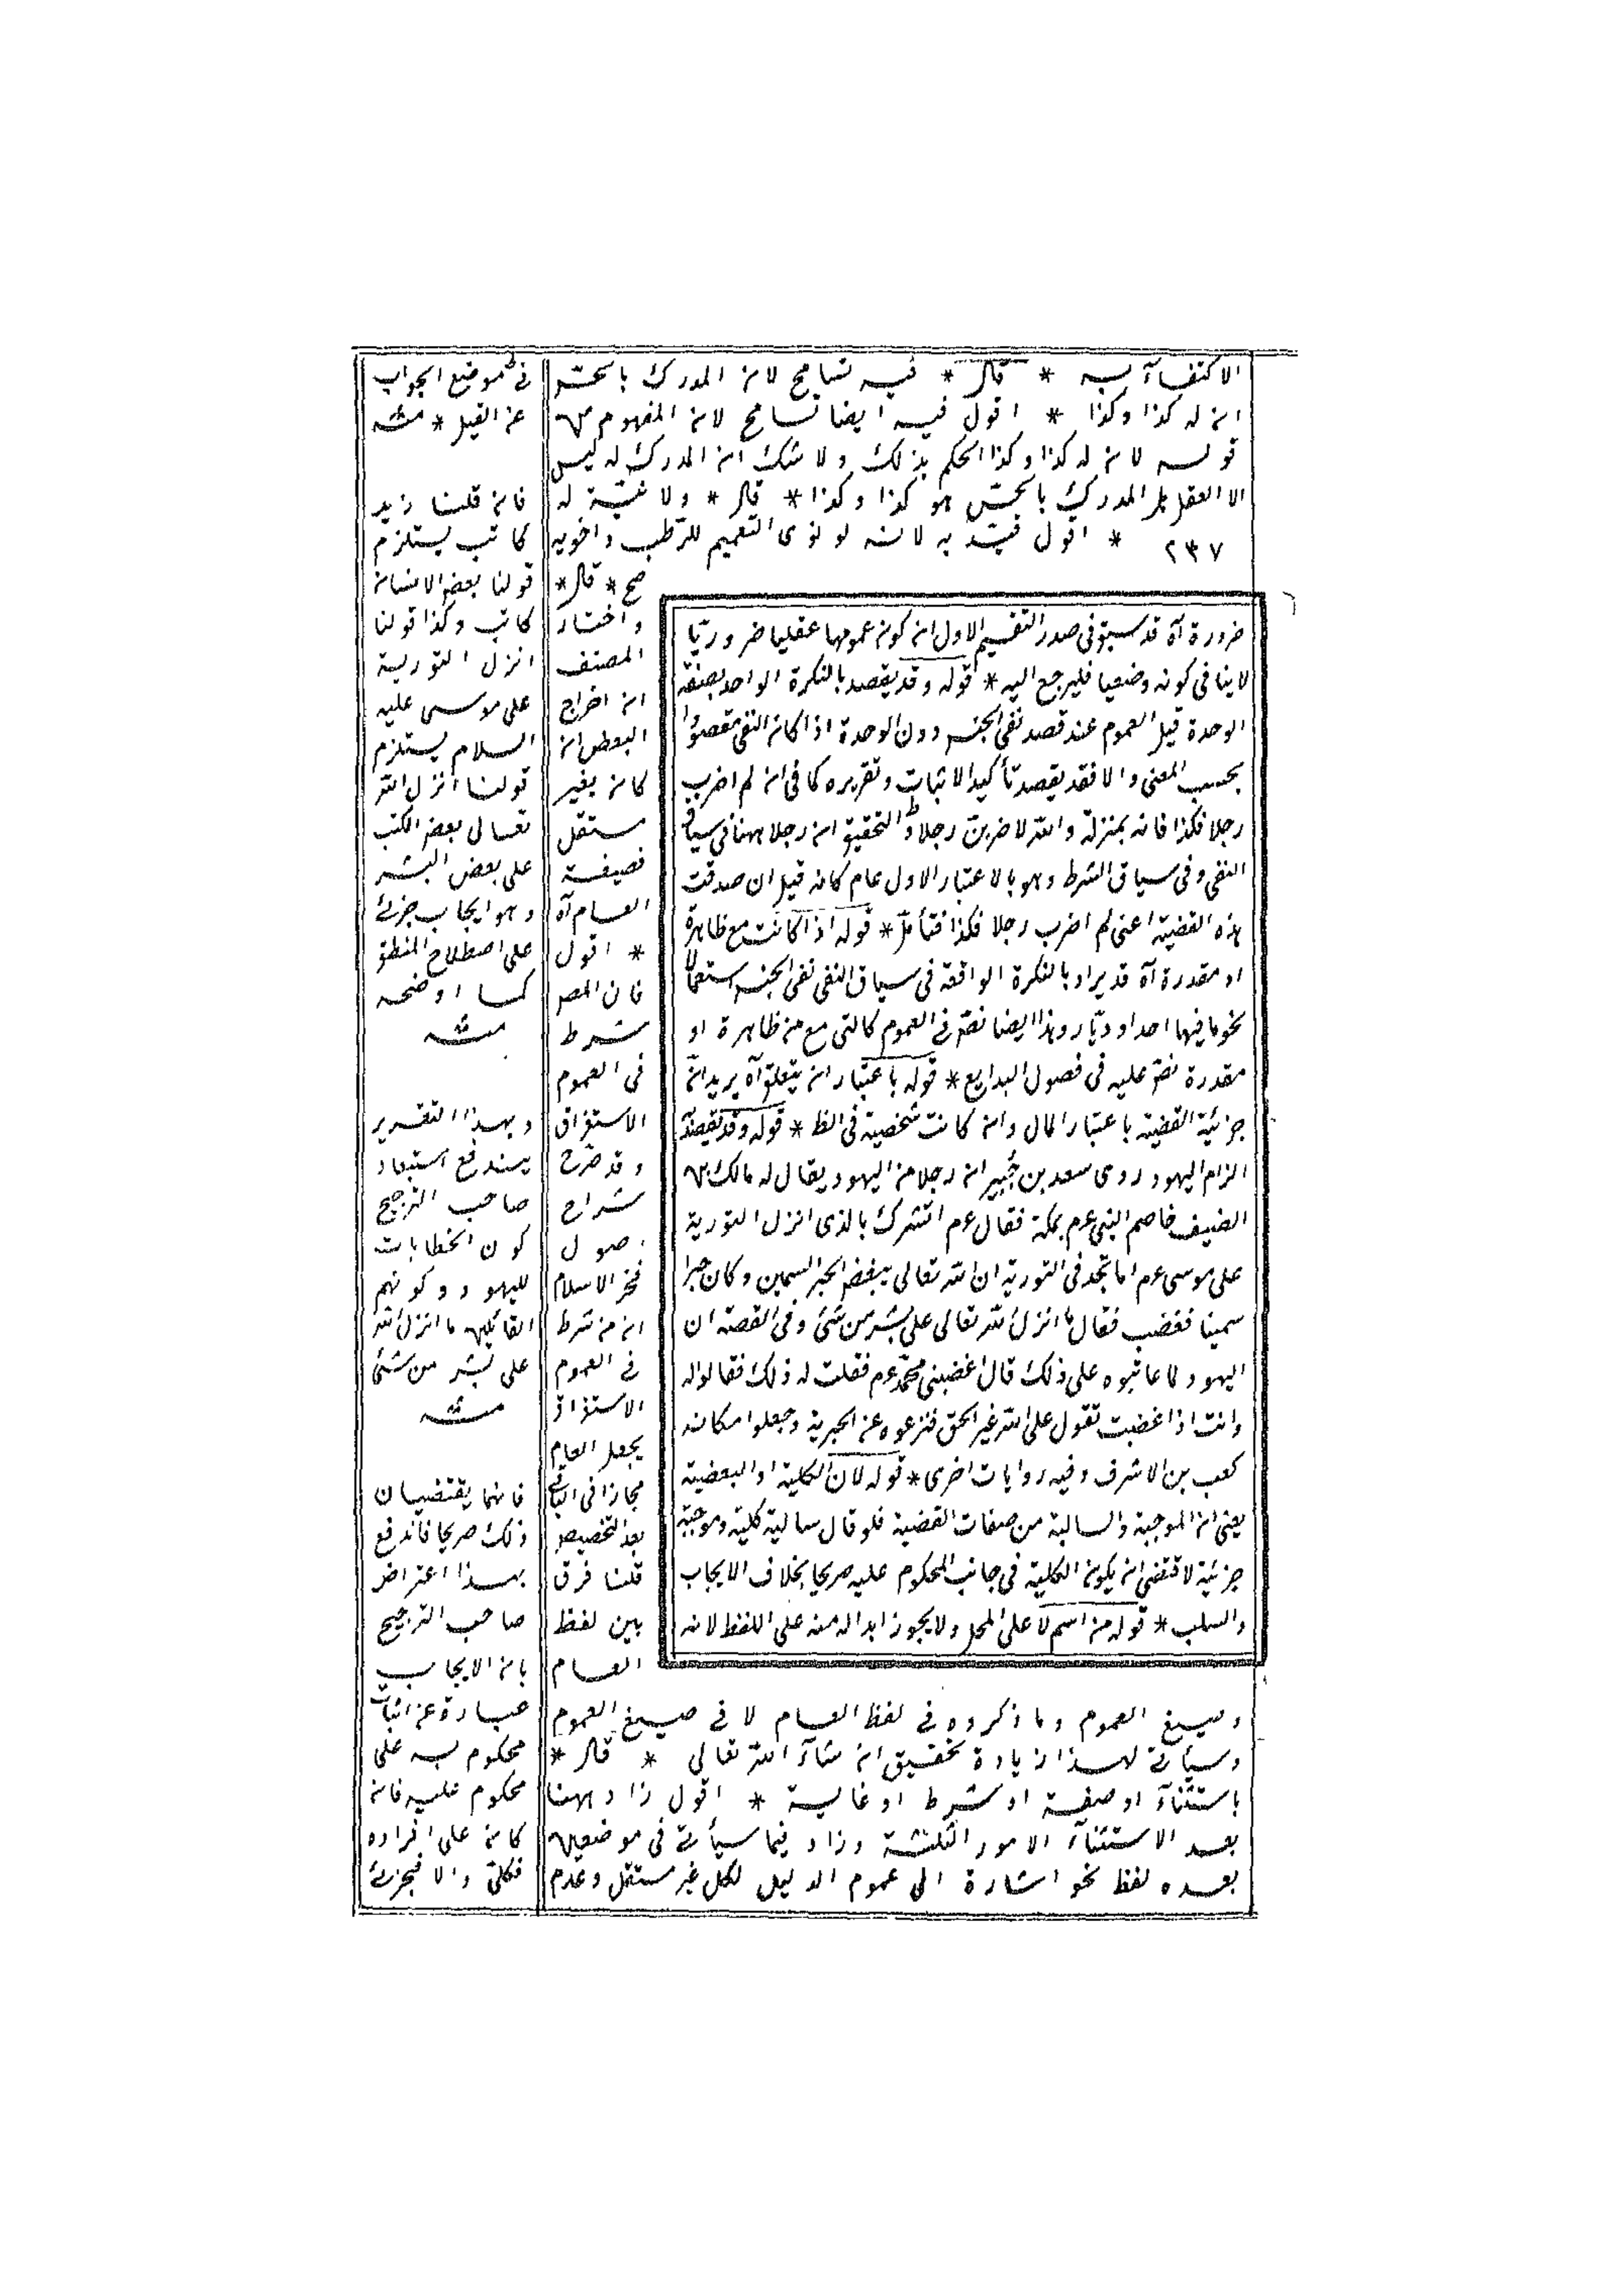 الاكتفاء به * قال * فيه تسامح لان المدرك بالحس
ان له كذا وكذا * اقول فيه ايضا تسامح لان المفهوم من
قوله لان له كذا وكذا الحكم بذلك ولا شك ان المدرك له ليس
الا العقل بل المدرك بالحس هو كذا وكذا * قال * ولا نية له
٢٣٧ * اقول قيد به لانه لو نوى التعميم للرطب واخويه
صح * قال *
واختار
المصنف
ان اخراج
البعض ان
كان بغير
مستقل
فصيغة
العام آه
* اقول
فان المص
شرط
فى العموم
الاستغراق
وقد صرح
شراح
اصول
فخر الاسلام
ان من شرط
فى العموم
الاستغراق
يجعل العام
مجازا فى الباقى
بعد التخصيص
قلنا فرق
بين لفظ
العام
وصيغ العموم وما ذكروه فى لفظ العام لا فى صيغ العموم
وسيأتى لهذا زيادة تحقيق ان شآء الله تعالى * قال *
باستثنآء او صفة او شرط او غاية * اقول زاد ههنا
بعد الاستثنآء الامور الثلثة وزاد فيما سيأتى فى موضعين
بعده لفظ نحو اشارة الى عموم الدليل لكل غير مستقل وعدم
ضرورة آه قد سبق فى صدر التقسيم الاول ان كون عمومها عقليا ضروريّا
لا ينافى كونه وضعيا فليرجع اليه * قوله وقد يقصد بالنكرة الواحد بصفة
الوحدة قيل العموم عند قصد نفى الجنس دون الوحدة اذا كان النفى مقصودا
بحسب المعنى والا فقد يقصد تأكيد الاثبات وتقريره كما فى ان لم اضرب
رجلا فكذا فانه بمنزلة والله لاضربن رجلا والتحقيق ان رجلا ههنا فى سياق
النفى وفى سياق الشرط وهو بالاعتبار الاول عام كانه قيل ان صدقت
هذه القضية اعنى لم اضرب رجلا فكذا فتأمل * قوله اذا كانت مع ظاهرة
او مقدرة آه قد يراد بالنكرة الواقعة فى سياق النفى نفى الجنس استعمالا
نحو ما فيها احد او ديّار وهذا ايضا نص فى العموم كالتى مع من ظاهرة او
مقدرة نص عليه فى فصول البدايع * قوله باعتبار ان يتعلق آه يريد ان
جزئية القضية باعتبار المال وان كانت شخصية فى الظ * قوله وقد يقصد
الزام اليهود روى سعد بن جُبير ان رجلا من اليهود يقال له مالك بن
الضيف خاصم النبى عم بمكة فقال عم انشدك بالذى انزل التورية
على موسى عم اما تجد فى التورية ان الله تعالى يبغض الحبر السمين وكان حبرا
سمينا فغضب فقال ما انزل الله تعالى على بشر من شئ وفى القصة ان
اليهود لما عاتبوه على ذلك قال اغضبنى محمد عم فقلت له ذلك فقالوا له
وانت اذا غضبت تقول على الله غير الحق فنزعوه عن الحبرية وجعلوا مكانه
كعب بن الاشرف وفيه روايات اخرى * قوله لان الكلية او البعضية
يعنى ان الموجبة والسالبة من صفات القضية فلو قال سالبة كلية وموجبة
جزئية لاقتضى ان يكون الكلية فى جانب المحكوم عليه صريحا بخلاف الايجاب
والسلب * قوله من اسم لا على المحل ولا يجوز ابداله منه على اللفظ لانه
فى موضع الجواب
عن القيل * منه
فان قلنا زيد
كاتب يستلزم
قولنا بعض الانسان
كاتب وكذا قولنا
انزل التورية
على موسى عليه
السلام يستلزم
قولنا انزل الله
تعالى بعض الكتب
على بعض البشر
وهو ايجاب جزئى
على اصطلاح المنطق
كما اوضحه
منه
وبهذا التقرير
يندفع استبعاد
صاحب الترجيح
كون الخطابات
لليهود وكونهم
القائلين ما انزل الله
على بشر من شئ
منه
فانهما يقتضيان
ذلك صريحا فاندفع
بهذا اعتراض
صاحب الترجيح
بان الايجاب
عبارة عن اثبات
محكوم به على
محكوم عليه فان
كان على افراده
فكلى والا فجزئى